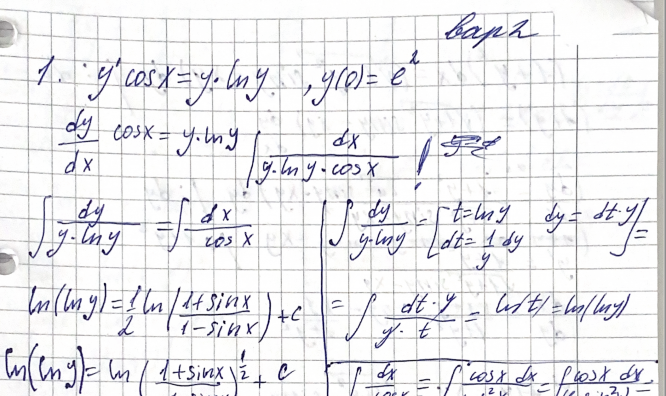 вар 2
1. y' cosx = y · ln y , y(0) = e²
dy/dx cosx = y · ln y ∫ dx/(y · ln y · cosx)
∫ dy/(y · ln y) = ∫ dx/cosx
∫ dy/(y · ln y) = [t = ln y dy = dt · y
dt = 1/y dy] =
ln(ln y) = 1/2 ln((1+sinx)/(1-sinx)) + c
= ∫ (dt · y)/(y · t) = ln|t| = ln(ln y)
ln(ln y) = ln((1+sinx)^(1/2) + c
∫ dx/cosx = ∫ cosx dx = ∫ cosx dx